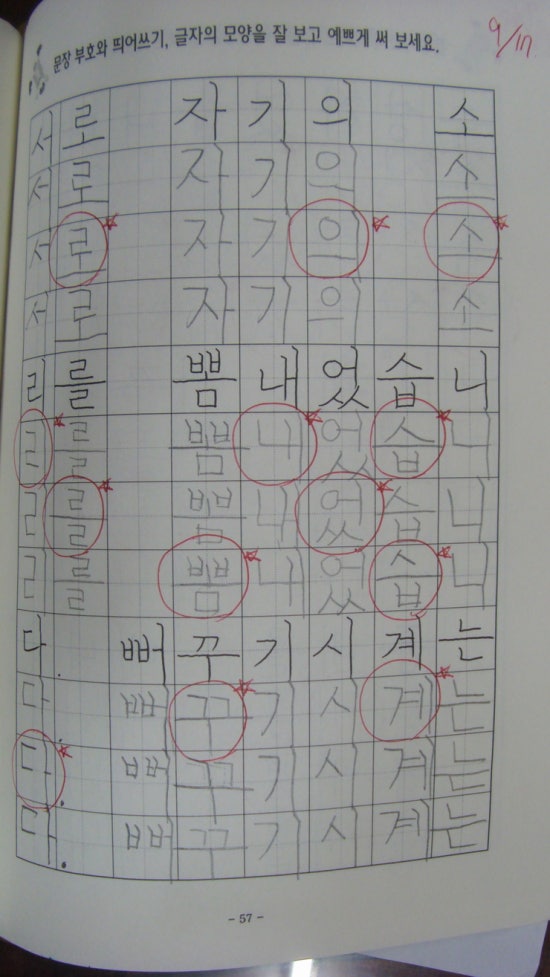 문장 부호와 띄어쓰기, 글자의 모양을 잘 보고 예쁘게 써 보세요.
9/17
서로 자기의 소
서로 자기의 소
서로 자기의 소
서로 자기의 소
리를 뽐내었습니
리를 뽐내었습니
리를 뽐내었습니
리를 뽐내었습니
다. 뻐꾸기시계는
다. 뻐꾸기시계는
다. 뻐꾸기시계는
다. 뻐꾸기시계는
- 57 -